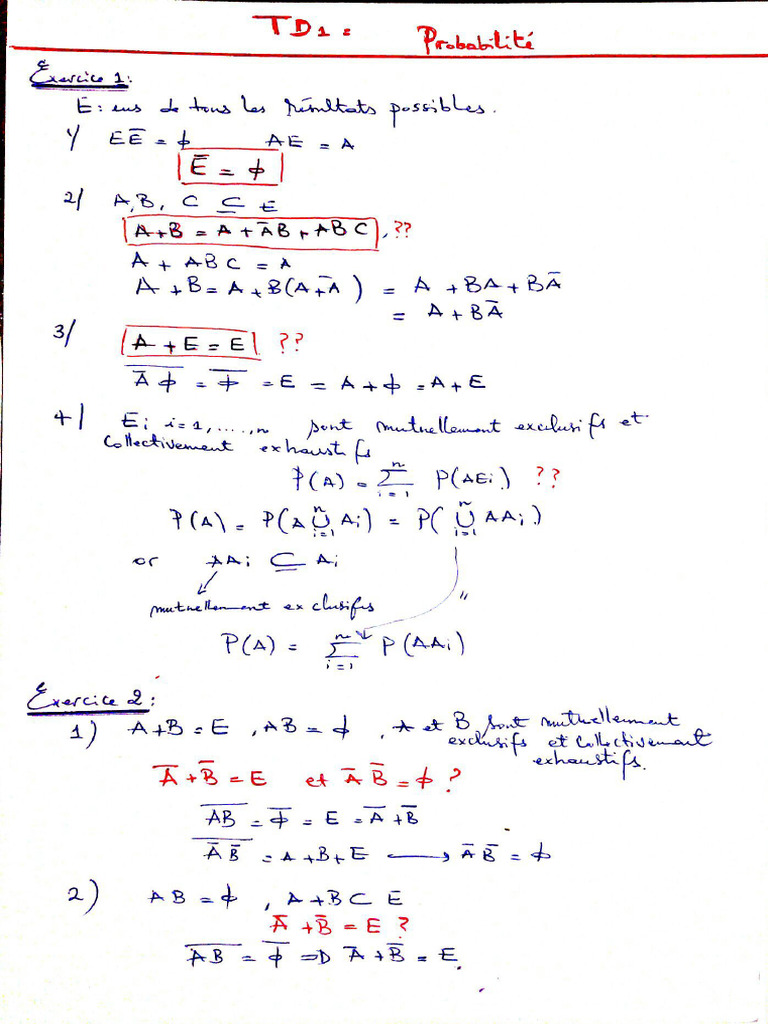 TD1 : Probabilité
Exercice 1:
E: ens de tous les résultats possibles.
1/ EE̅ = ϕ AE = A
E̅ = ϕ
2/ A, B, C ⊆ E
A+B = A + A̅B + ABC, ??
A + ABC = A
A + B = A + B(A + A̅) = A + BA + BA̅
= A + BA̅
3/ A + E = E ??
\overline{A̅ ϕ} = \overline{ϕ} = E = A + ϕ̅ = A + E
4/ Ei i=1, ...., n sont mutuellement exclusifs et
collectivement exhaustifs
P(A) = \sum_{i=1}^{n} P(AEi) ??
P(A) = P(A \bigcup_{i=1}^{n} Ai) = P(\bigcup_{i=1}^{n} AAi)
or AAi ⊆ Ai
mutuellement exclusifs "
P(A) = \sum_{i=1}^{n} P(AAi)
Exercice 2:
1) A+B = E, AB = ϕ, A et B sont mutuellement
exclusifs et collectivement
exhaustifs.
A̅ + B̅ = E et A̅ B̅ = ϕ ?
\overline{AB} = \overline{ϕ} = E = A̅ + B̅
\overline{A̅ B̅} = A + B + E ⟶ A̅ B̅ = ϕ
2) AB = ϕ, A+B ⊂ E
A̅ + B̅ = E ?
\overline{AB} = \overline{ϕ} ⇒ A̅ + B̅ = E.